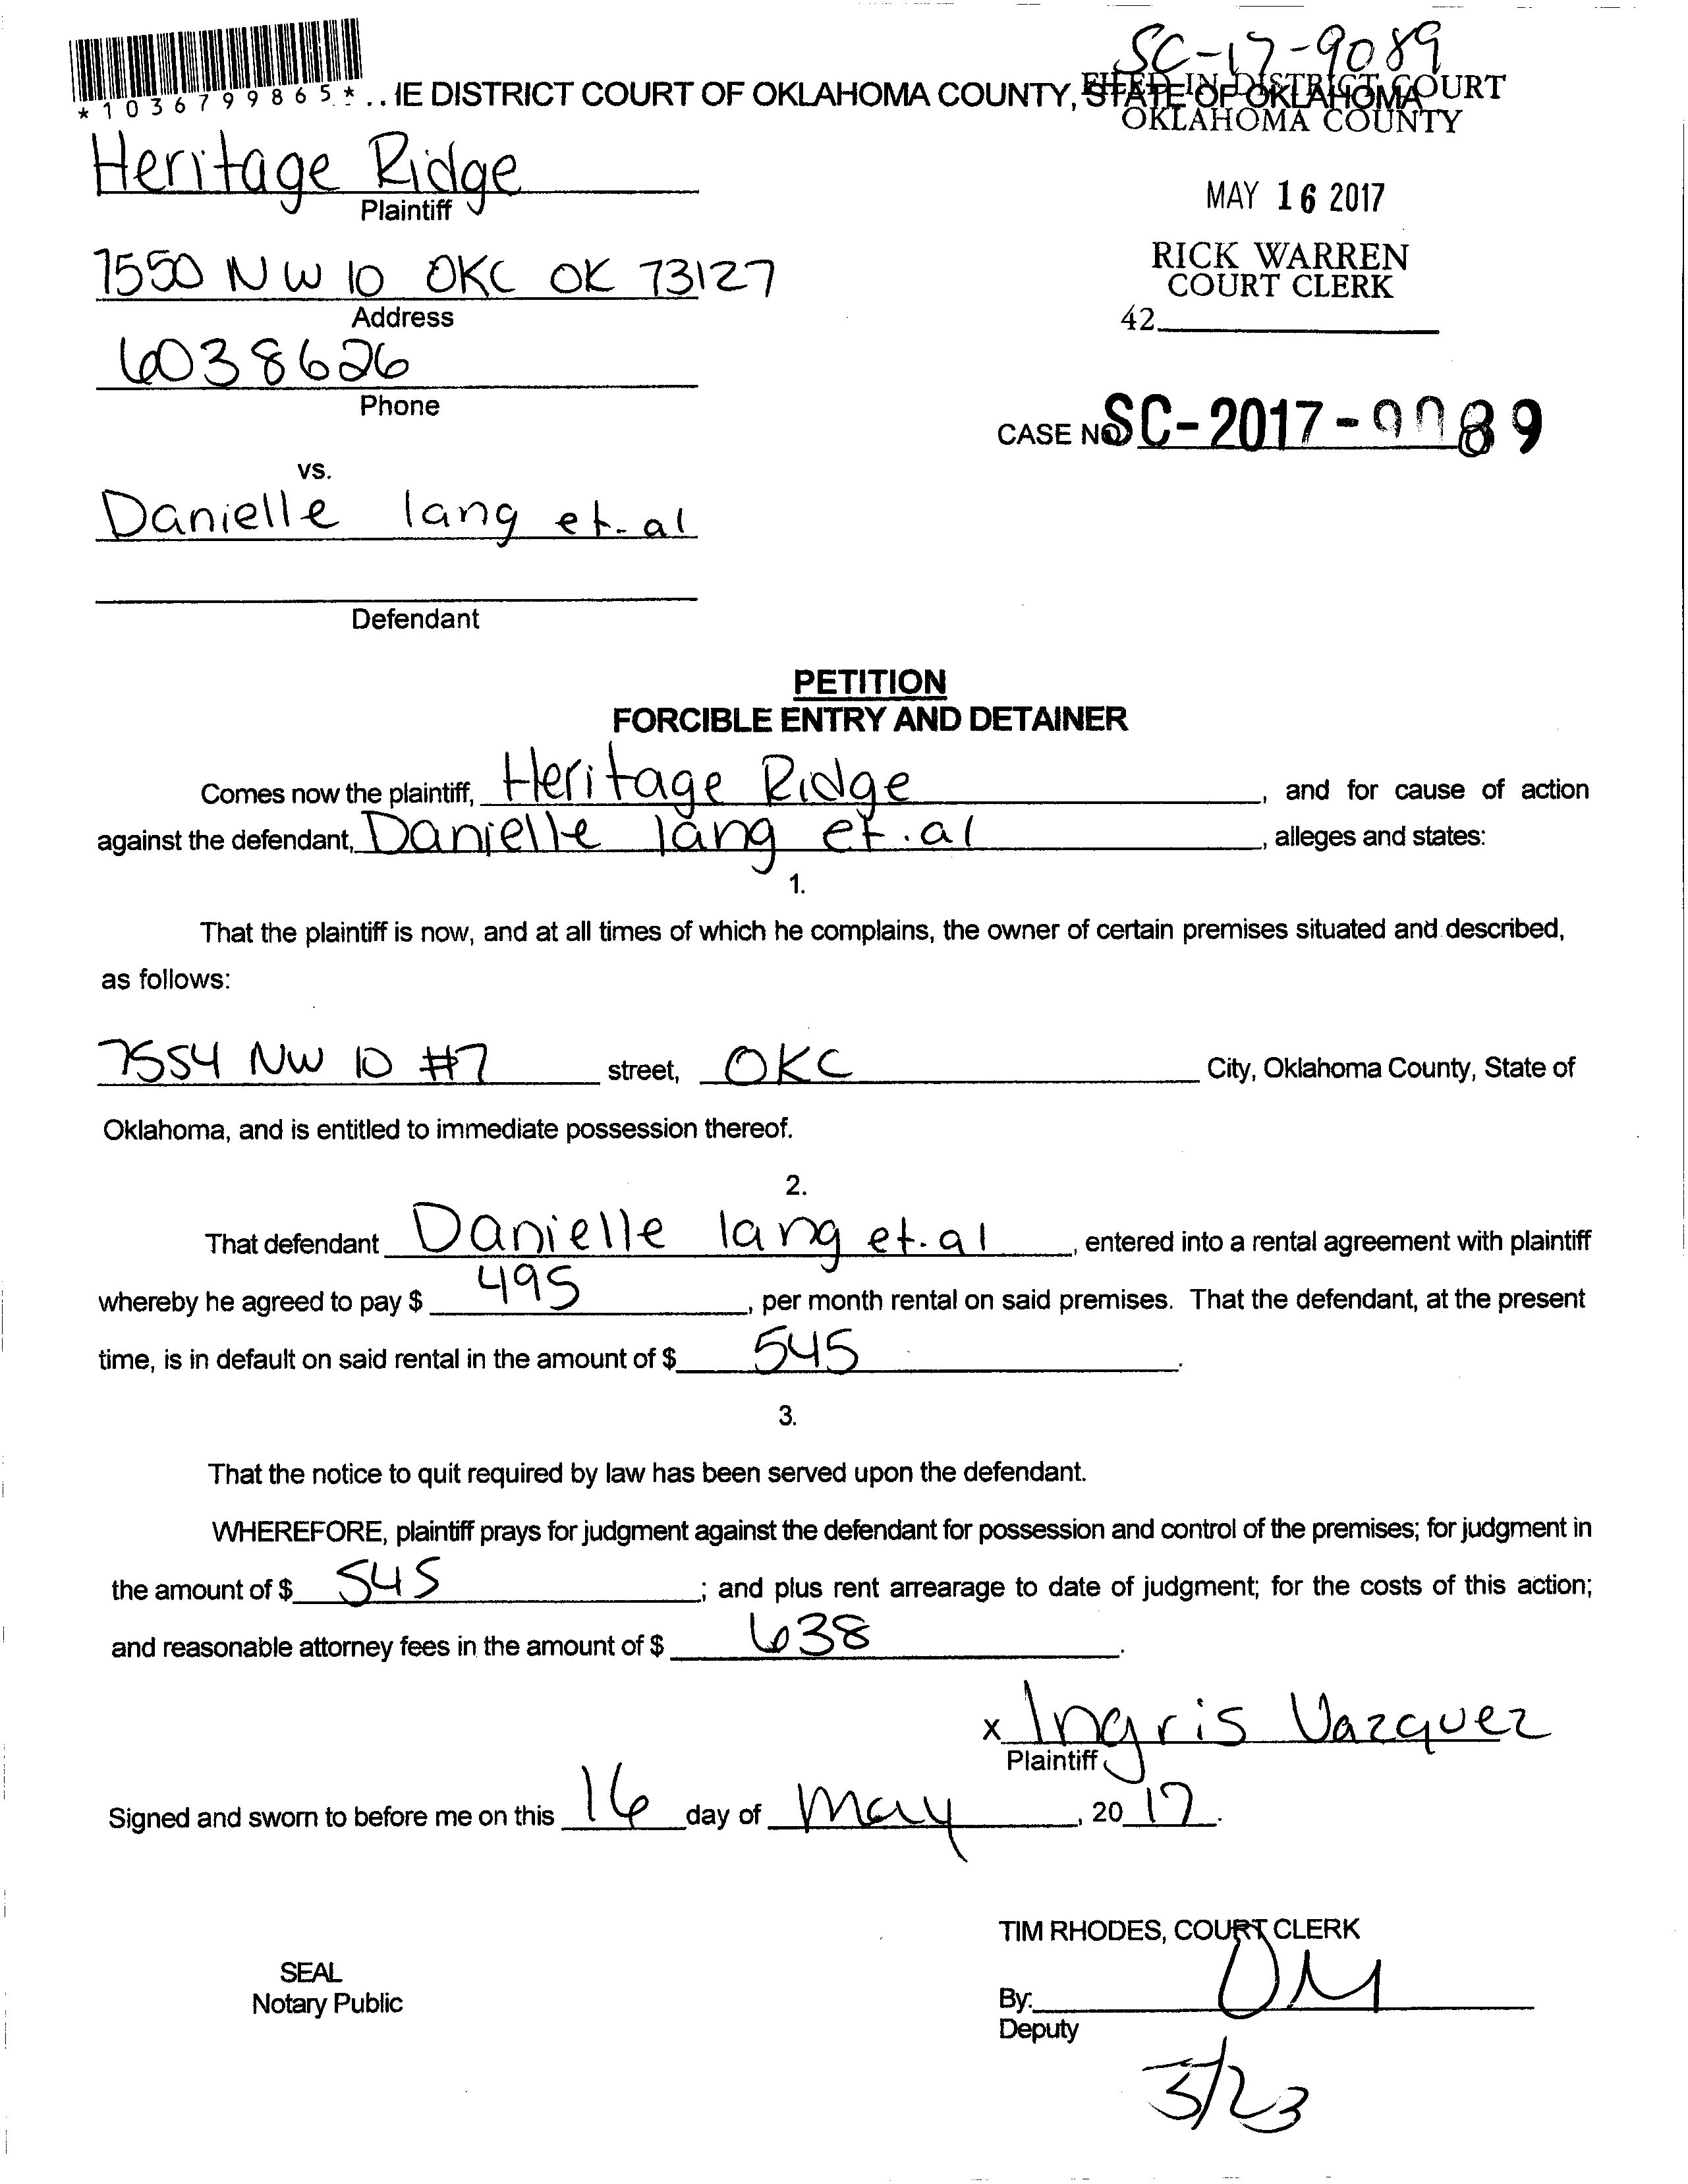 SC-17-9089
*1036799865* ..IE DISTRICT COURT OF OKLAHOMA COUNTY, STATE OF OKLAHOMA
FILED IN DISTRICT COURT
OKLAHOMA COUNTY
Heritage Ridge
Plaintiff
MAY 16 2017
RICK WARREN
COURT CLERK
42
7550 NW 10 OKC OK 73127
Address
6038626
Phone
CASE NO. SC-2017-9089
vs.
Danielle lang et.al
Defendant
PETITION
FORCIBLE ENTRY AND DETAINER
Comes now the plaintiff, Heritage Ridge, and for cause of action
against the defendant, Danielle lang et.al, alleges and states:
1.
That the plaintiff is now, and at all times of which he complains, the owner of certain premises situated and described,
as follows:
7554 NW 10 #7 street, OKC City, Oklahoma County, State of
Oklahoma, and is entitled to immediate possession thereof.
2.
That defendant Danielle lang et.al, entered into a rental agreement with plaintiff
whereby he agreed to pay $ 495, per month rental on said premises. That the defendant, at the present
time, is in default on said rental in the amount of $ 545.
3.
That the notice to quit required by law has been served upon the defendant.
WHEREFORE, plaintiff prays for judgment against the defendant for possession and control of the premises; for judgment in
the amount of $ 545; and plus rent arrearage to date of judgment; for the costs of this action;
and reasonable attorney fees in the amount of $ 638.
x Ingris Vazquez
Plaintiff
Signed and sworn to before me on this 16 day of May, 2017.
TIM RHODES, COURT CLERK
SEAL
Notary Public
By: DM
Deputy
5/23